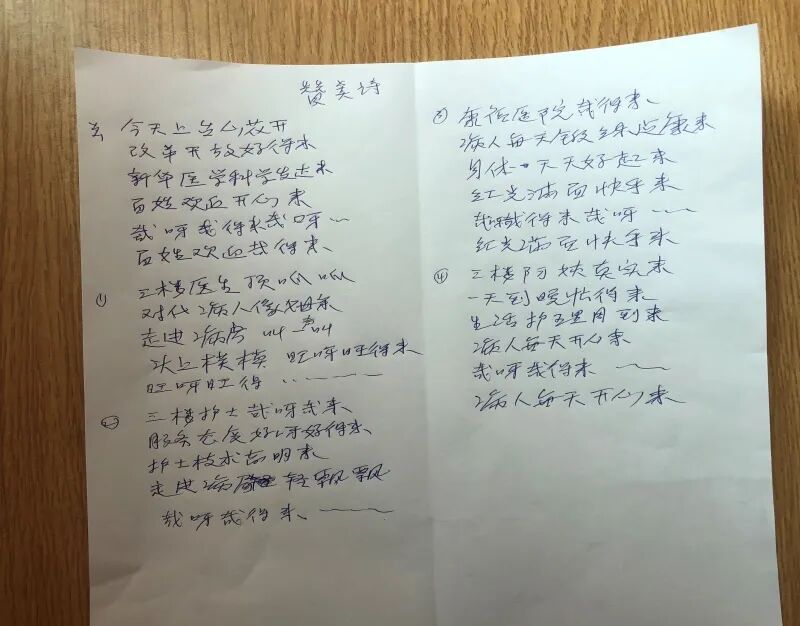 赞美诗
今天上生心花开
改革开放好得来
新华医学科学发达来
百姓欢迎开心来
哉呀哉得来哉呀~~
百姓欢迎哉得来
① 三楼医生顶呱呱
对代病人像母亲
走进病房
头上摸摸 旺呀旺得来
旺呀旺得 ~~~~
② 三楼护士哉呀哉来
服务态度好呀好得来
护士技术高明来
走进病房轻飘飘
哉呀哉得来 ~~~~
③ 康复医院哉得来
病人每天锻练健康来
身体一天天好起来
红光满面快乎来
哉呀哉得来哉呀 ~~~
红光满面快乎来
④ 三楼阿姨真实来
一天到晚忙得来
生活护理周到来
病人每天开心来
哉呀哉得来 ~~~
病人每天开心来